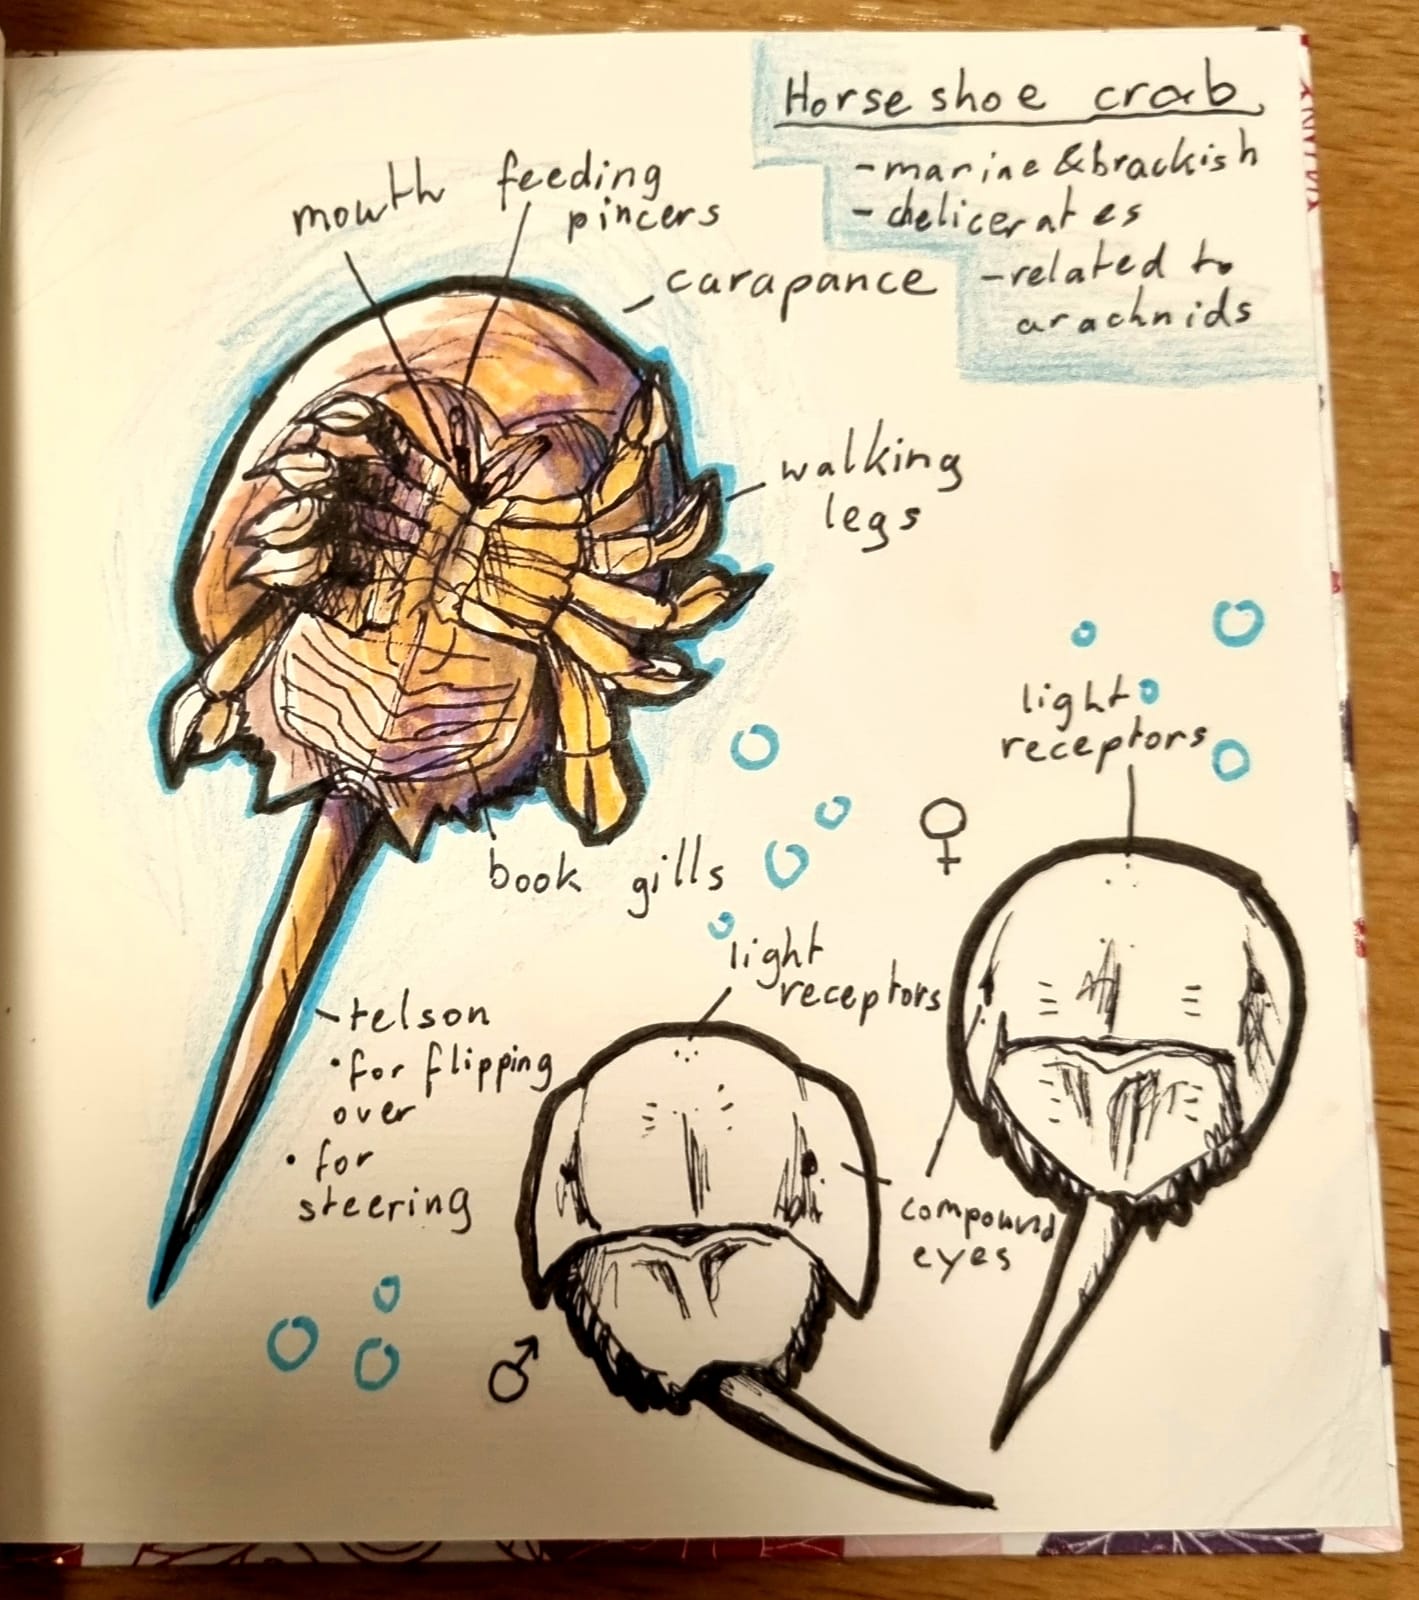 Horse shoe crab
- marine & brackish
- chelicerates
- related to
arachnids
mouth
feeding
pincers
carapance
walking
legs
book gills
- telson
• for flipping
over
• for
steering
light
receptors
♀
light
receptors
compound
eyes
♂